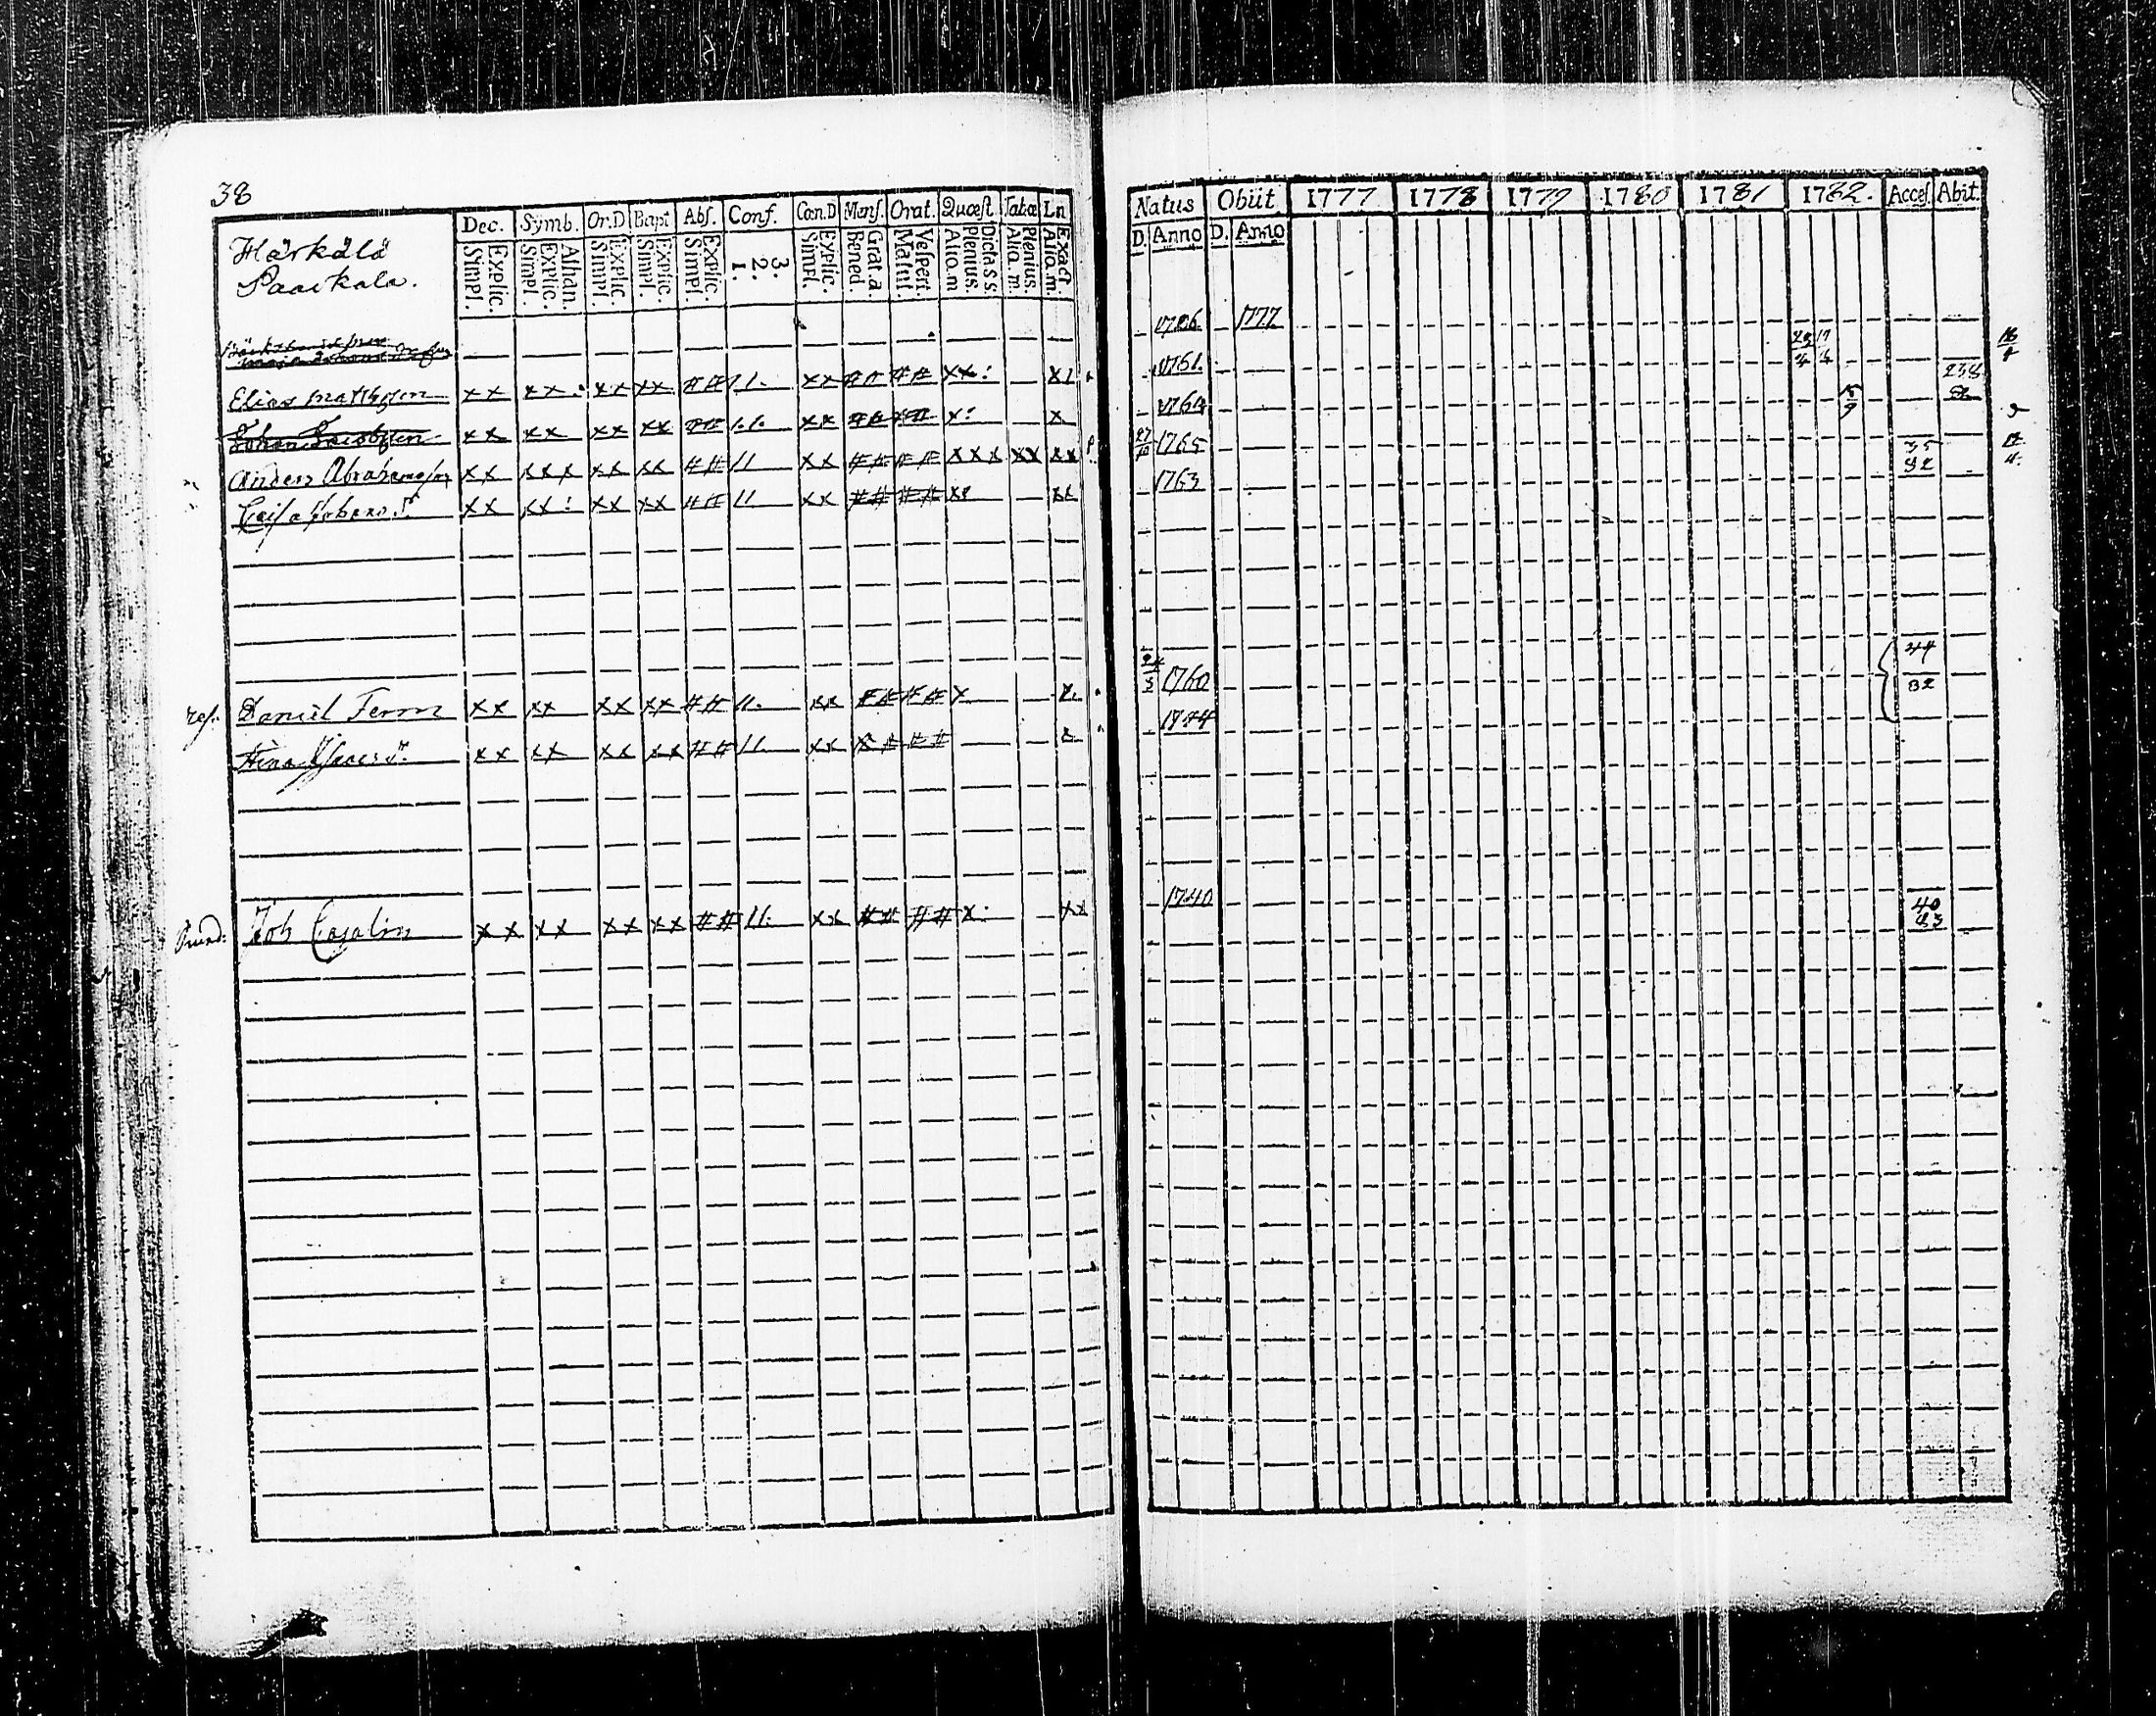 38
Härkälä
Paarkala.
Dec. Symb. Or.D Bapt Abs. Conf. Cœn.D Mens. Orat. Quæst Tabæ Ln
Simpl. Explic. Simpl. Explic. Athan. Simpl. Explic. Simpl. Explic. Simpl. Explic. 1. 2. 3. Simpl. Explic. Bened. Grat.a. Matut. Vespert. Alio.m Plenius. Dicta s s. Aliq.m Plenius. Alio.m. Exact.
Natus Obiit 1777 1778 1779 1780 1781 1782. Acces. Abit.
D. Anno D. Anno
1777
Elias Matthsson xx xx xx xx ## 11. xx ## ## xx: x1
1761.
Johan xx xx xx xx ## 1.1. xx ## ## x: x
1764
Anders Abrahamsson xx xxx xx xx ## 11 xx ## ## xxx xx xx
27/10 1765 35 82
Caisa Johans dr xx xx: xx xx ## 11 xx ## ## x: xx
1763
Daniel Ferm xx xx xx xx ## 11. xx ## ## x x.
1760 44 82
xx xx xx xx ## 11. xx ## ## x
1744
Joh Cajalin xx xx xx xx ## 11. xx ## ## x: xx
1740 40 83